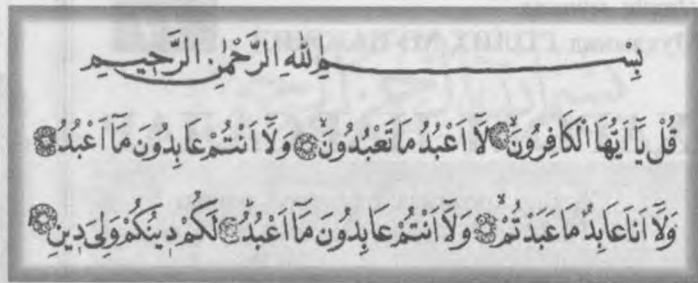 بِسْمِ اللّٰهِ الرَّحْمٰنِ الرَّحٖيمِ
قُلْ يَٓا اَيُّهَا الْكَافِرُونَۙ ۝ لَٓا اَعْبُدُ مَا تَعْبُدُونَۙ ۝ وَلَٓا اَنْتُمْ عَابِدُونَ مَٓا اَعْبُدُۚ ۝
وَلَٓا اَنَا عَابِدٌ مَا عَبَدْتُمْۙ ۝ وَلَٓا اَنْتُمْ عَابِدُونَ مَٓا اَعْبُدُۜ ۝ لَكُمْ دٖينُكُمْ وَلِيَ دٖينِ ۝